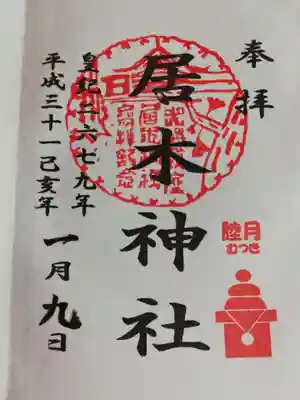 奉拝
居木神社
睦月
むつき
皇紀二六七九年
平成三十一己亥年
一月九日